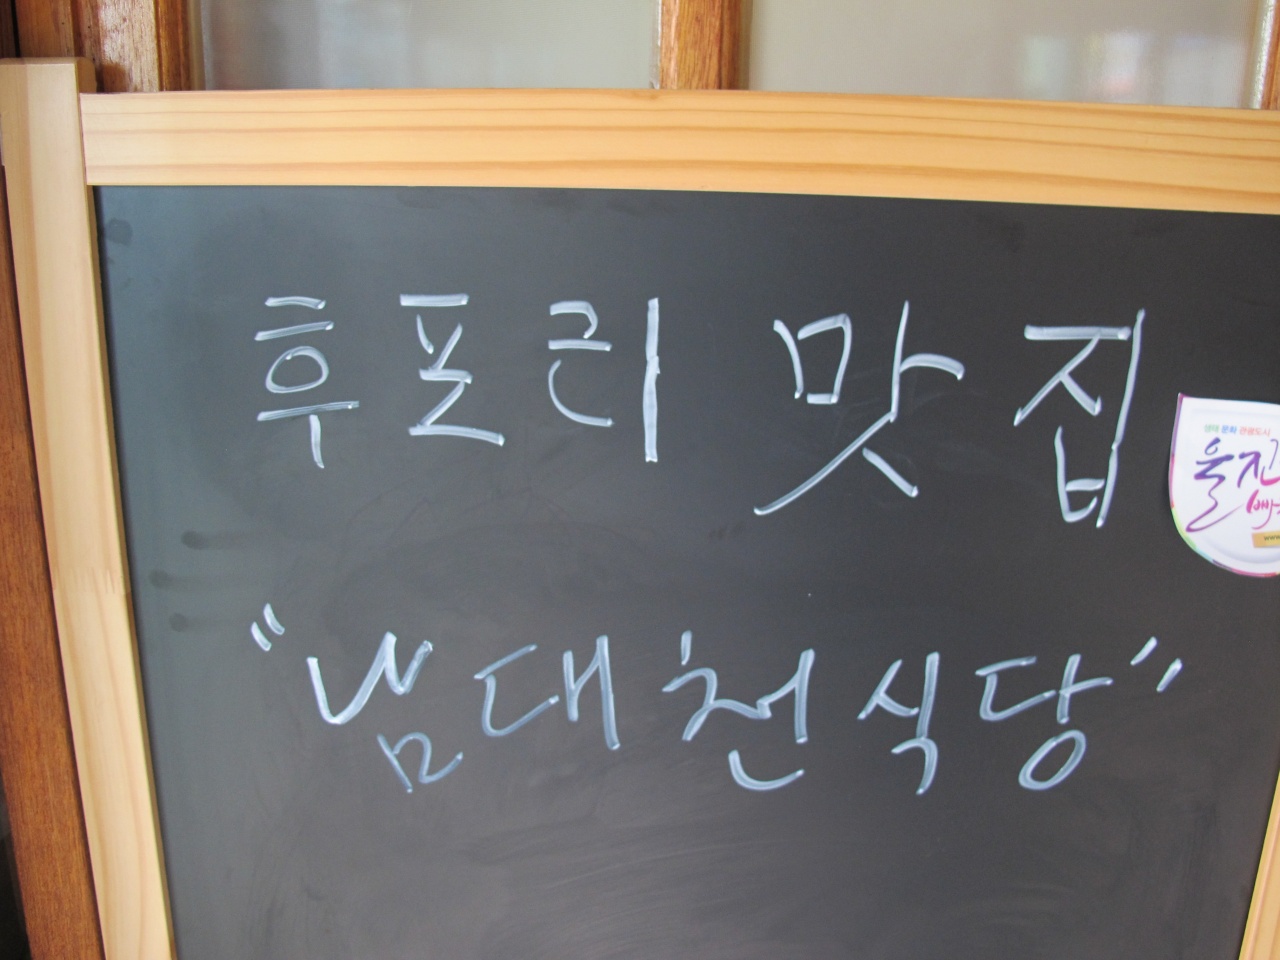 후포리 맛집
생태 문화 관광도시
울진
"남대천식당"